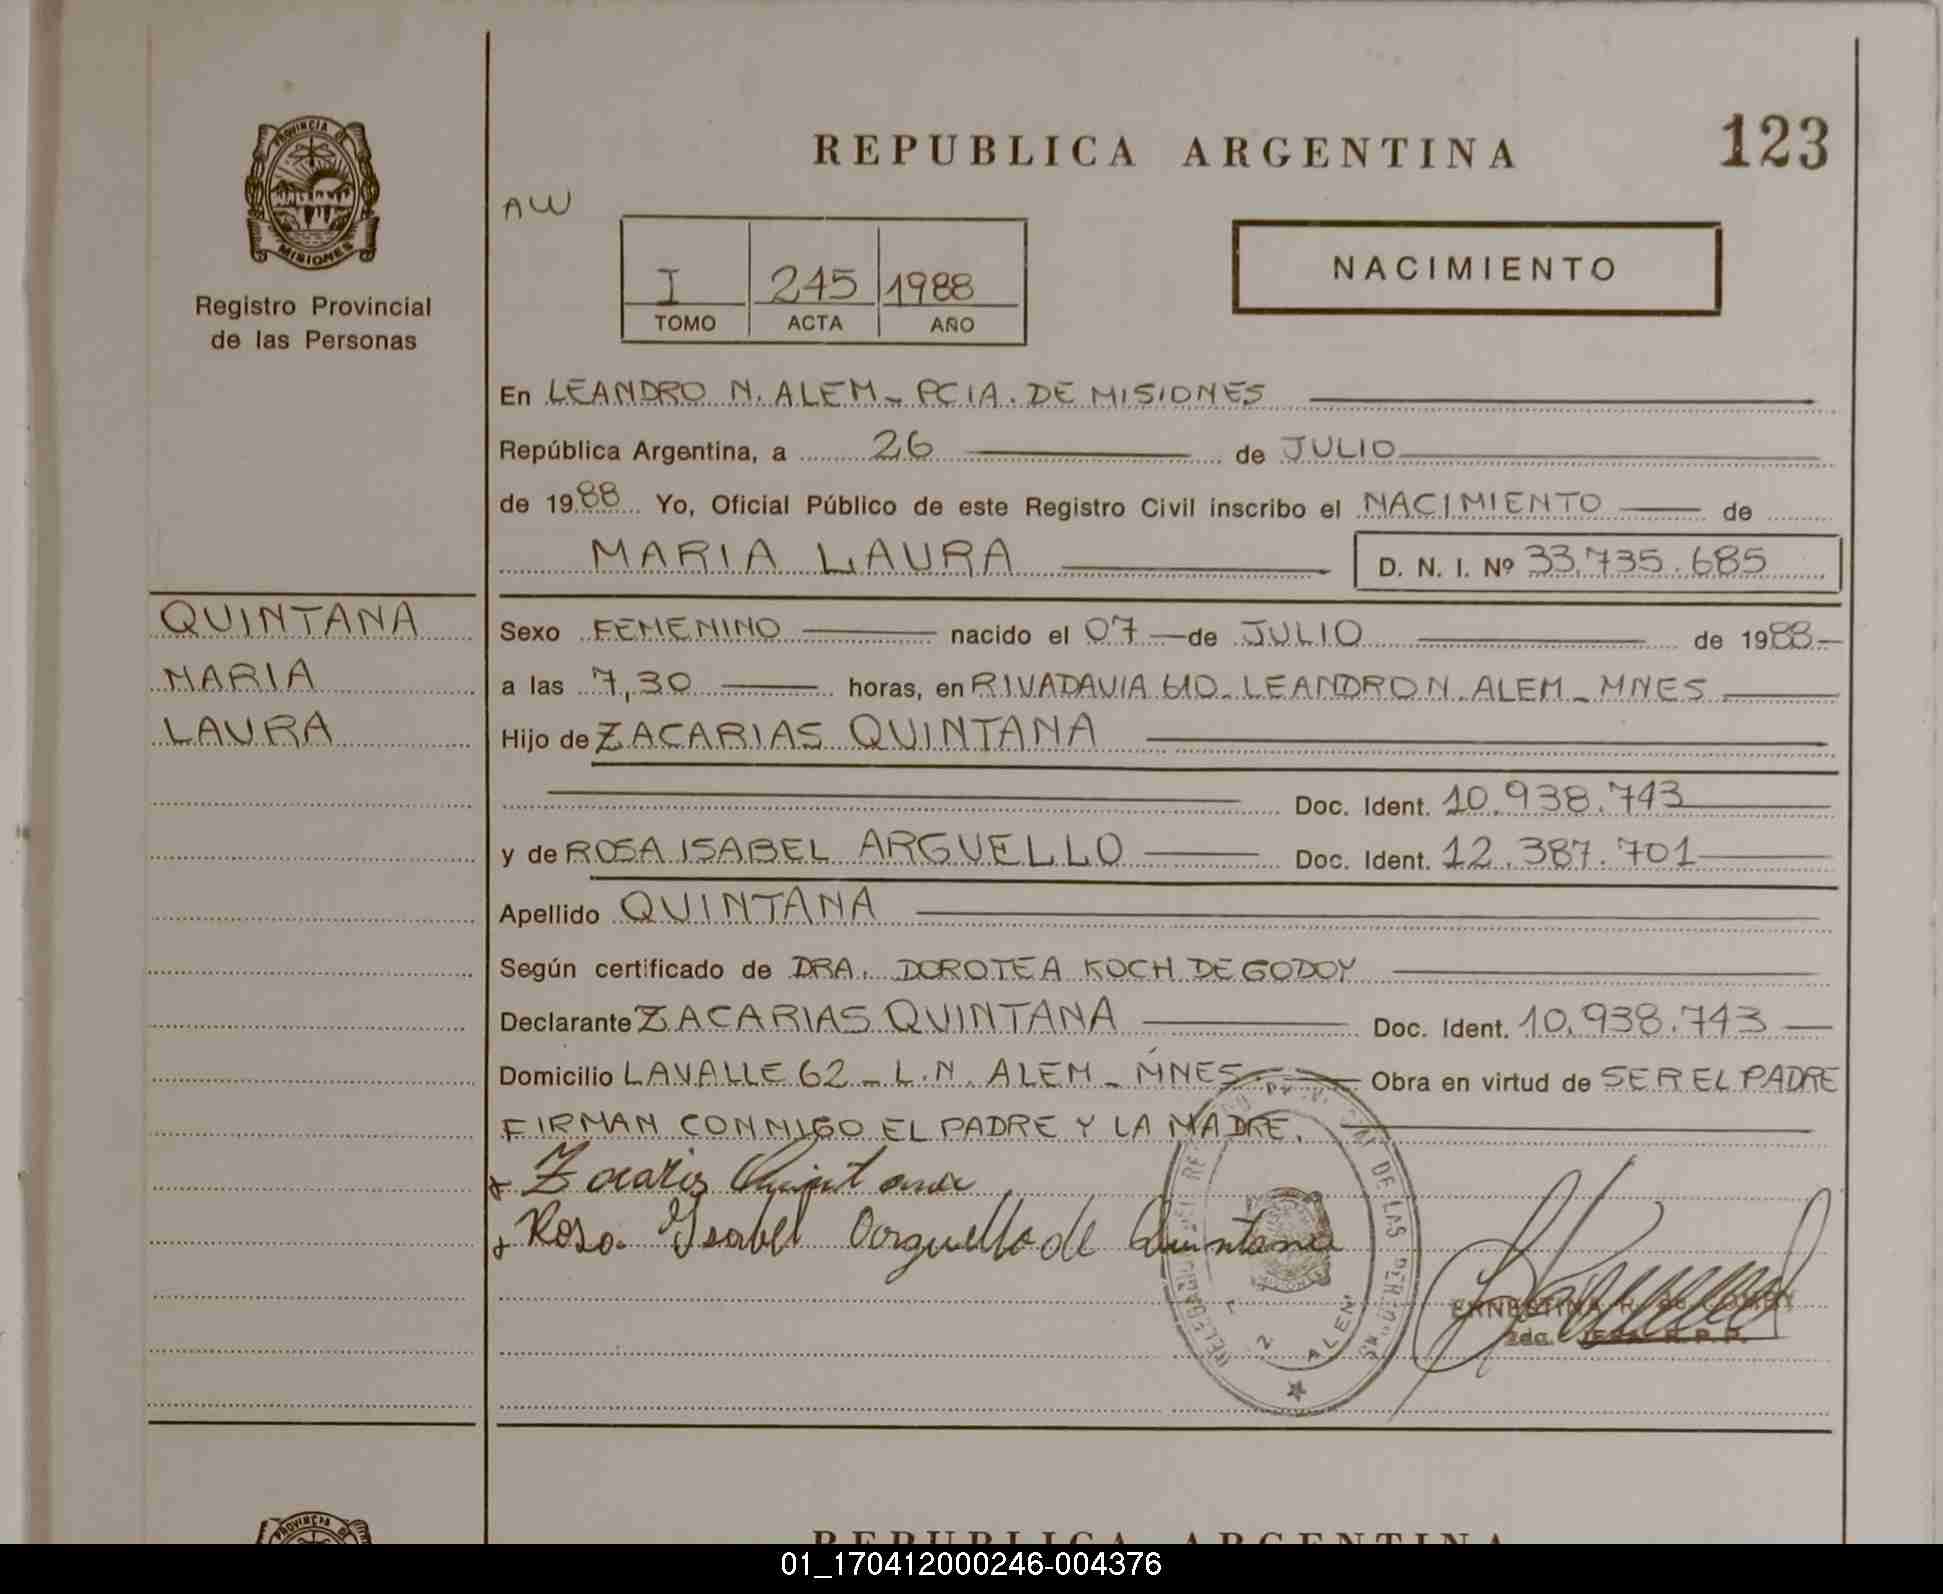 REPUBLICA ARGENTINA
123
PROVINCIA DE
MISIONES
Registro Provincial
de las Personas
AW
I 245 1988
TOMO ACTA AÑO
NACIMIENTO
En LEANDRO N. ALEM - PCIA. DE MISIONES
República Argentina, a 26 de JULIO
de 1988 Yo, Oficial Público de este Registro Civil inscribo el NACIMIENTO de
MARIA LAURA D. N. I. Nº 33.735.685
QUINTANA
MARIA
LAURA
Sexo FEMENINO nacido el 07 de JULIO de 1988
a las 7,30 horas, en RIVADAVIA 610 - LEANDRO N. ALEM - MNES
Hijo de ZACARIAS QUINTANA
Doc. Ident. 10.938.743
y de ROSA ISABEL ARGUELLO Doc. Ident. 12.387.701
Apellido QUINTANA
Según certificado de DRA. DOROTEA KOCH DE GODOY
Declarante ZACARIAS QUINTANA Doc. Ident. 10.938.743
Domicilio LAVALLE 62 - L.N. ALEM - MNES Obra en virtud de SER EL PADRE
FIRMAN CONMIGO EL PADRE Y LA MADRE.
Zacarias Quintana
Rosa Ysabel Arguello de Quintana
DE LAS PERSONAS
ALEM
ERNESTINA R. de
2da. JEFA R.P.P.
PROVINCIA DE
REPUBLICA ARGENTINA
01_170412000246-004376